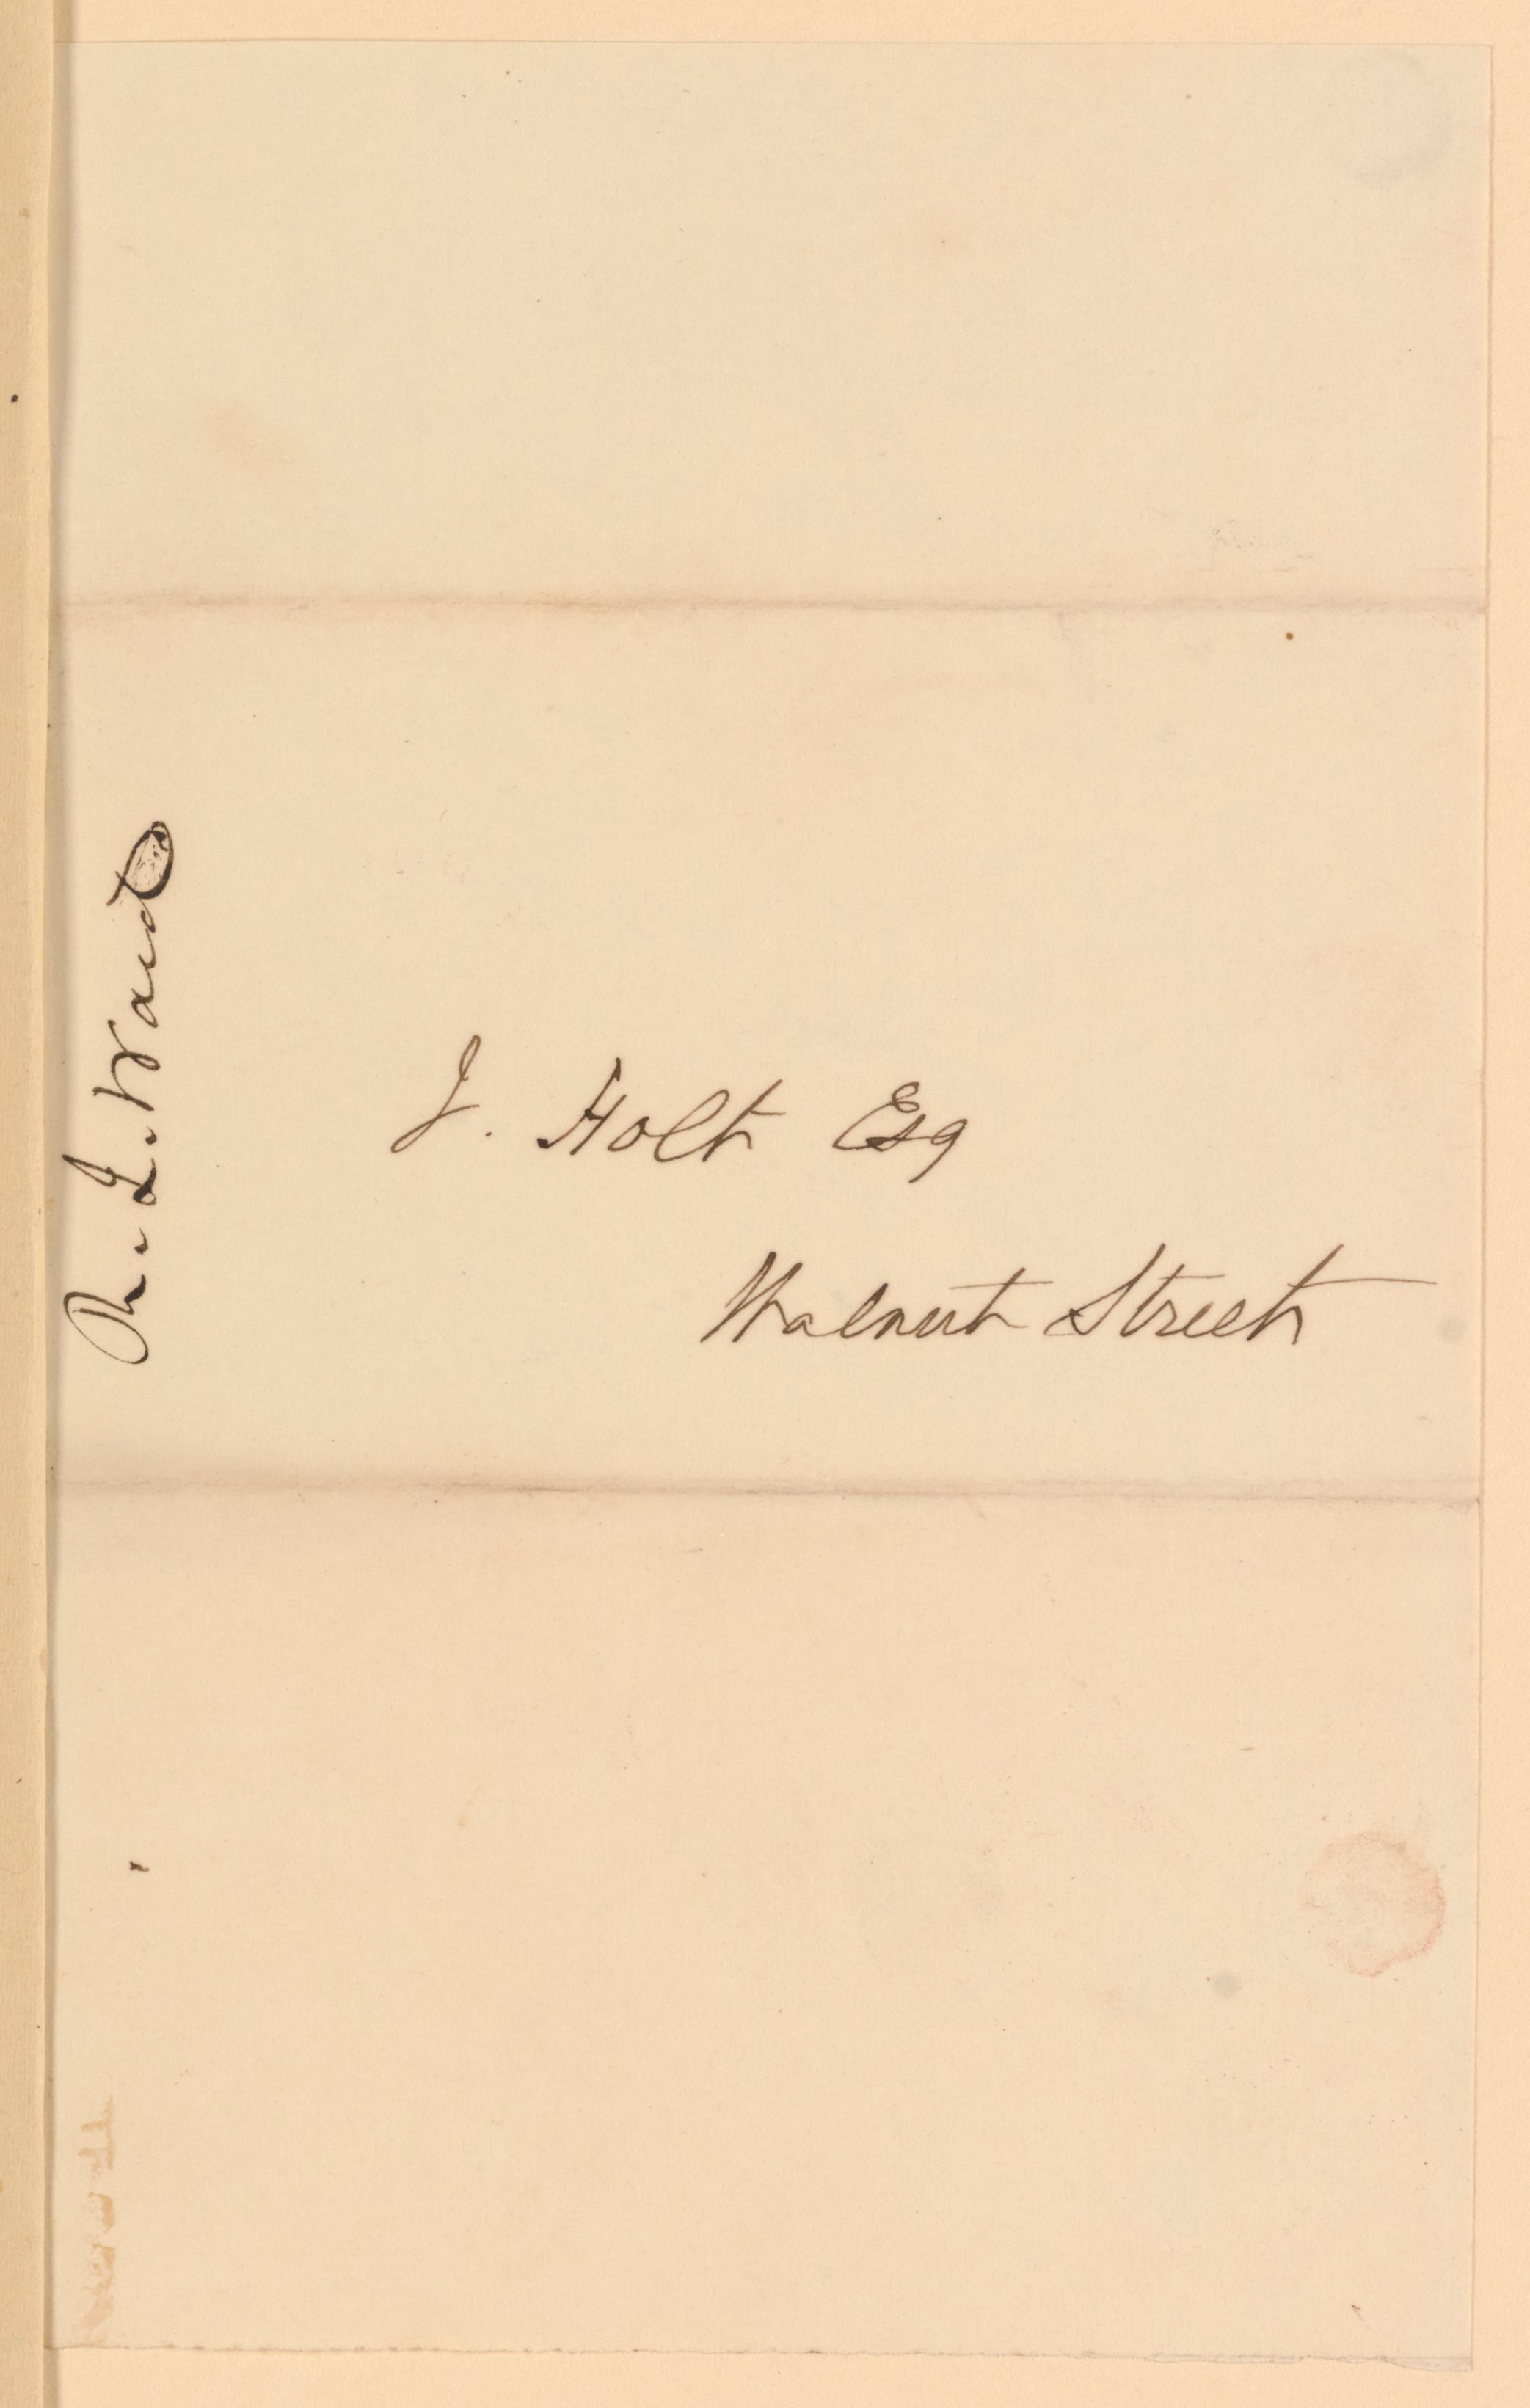 R. J. Ward
J. Holt Esq
Walnut Street